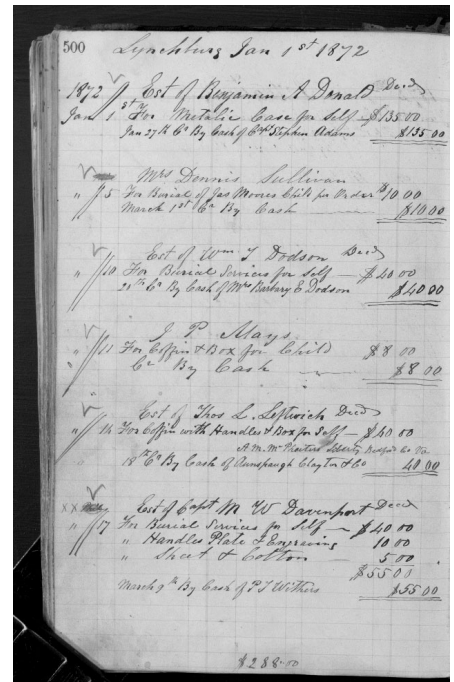 500 Lynchburg Jan 1st 1872
1872 Est of Benjamin A Donald Decd
Jan 1st For Metalic Case for Self — $135.00
Jan 27th Cr By Cash of Stephen Adams $135 00
Mrs Dennis Sullivan
" 5 For Burial of Jas Moores Child per Order $10 00
March 1st Cr By Cash — $10 00
Est of Wm T Dodson Decd
" 10 For Burial Services for Self — $40 00
Cr By Cash of Mrs Barbary E Dodson $40 00
J P Mays
" 11 For Coffin & Box for Child $8 00
Cr By Cash — $8 00
Est of Thos L. Leftwich Decd
" 14 For Coffin with Handles & Box for Self — $40 00
A. M. Liberty Bedford Co Va
18th Cr By Cash of Clayton & Co 40 00
Est of Capt M W Davenport Decd
" 17 For Burial Services for Self — $40 00
" Handles Plate & Engraving 10 00
" Sheet & Cotton — 5 00
$55 00
March 9th By Cash of P T Withers $55 00
$288.00